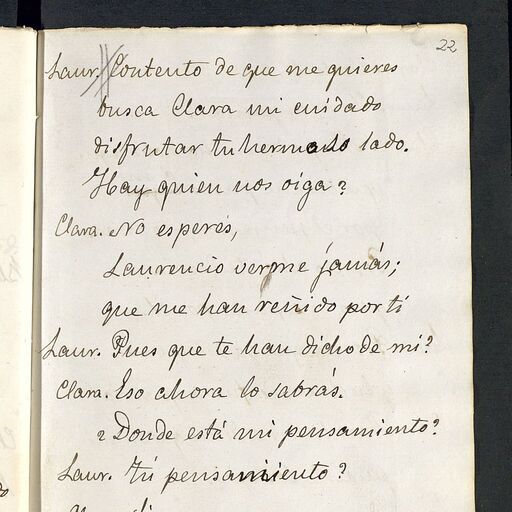 22
Laur. Contento de que me quieres
busca Clara mi cuidado
disfrutar tu hermoso lado.
Hay quien nos oiga?
Clara. No esperes,
Laurencio verme jamás;
que me han reñido por ti
Laur. Pues que te han dicho de mi?
Clara. Eso ahora lo sabrás.
¿Donde está mi pensamiento?
Laur. Tú pensamiento?